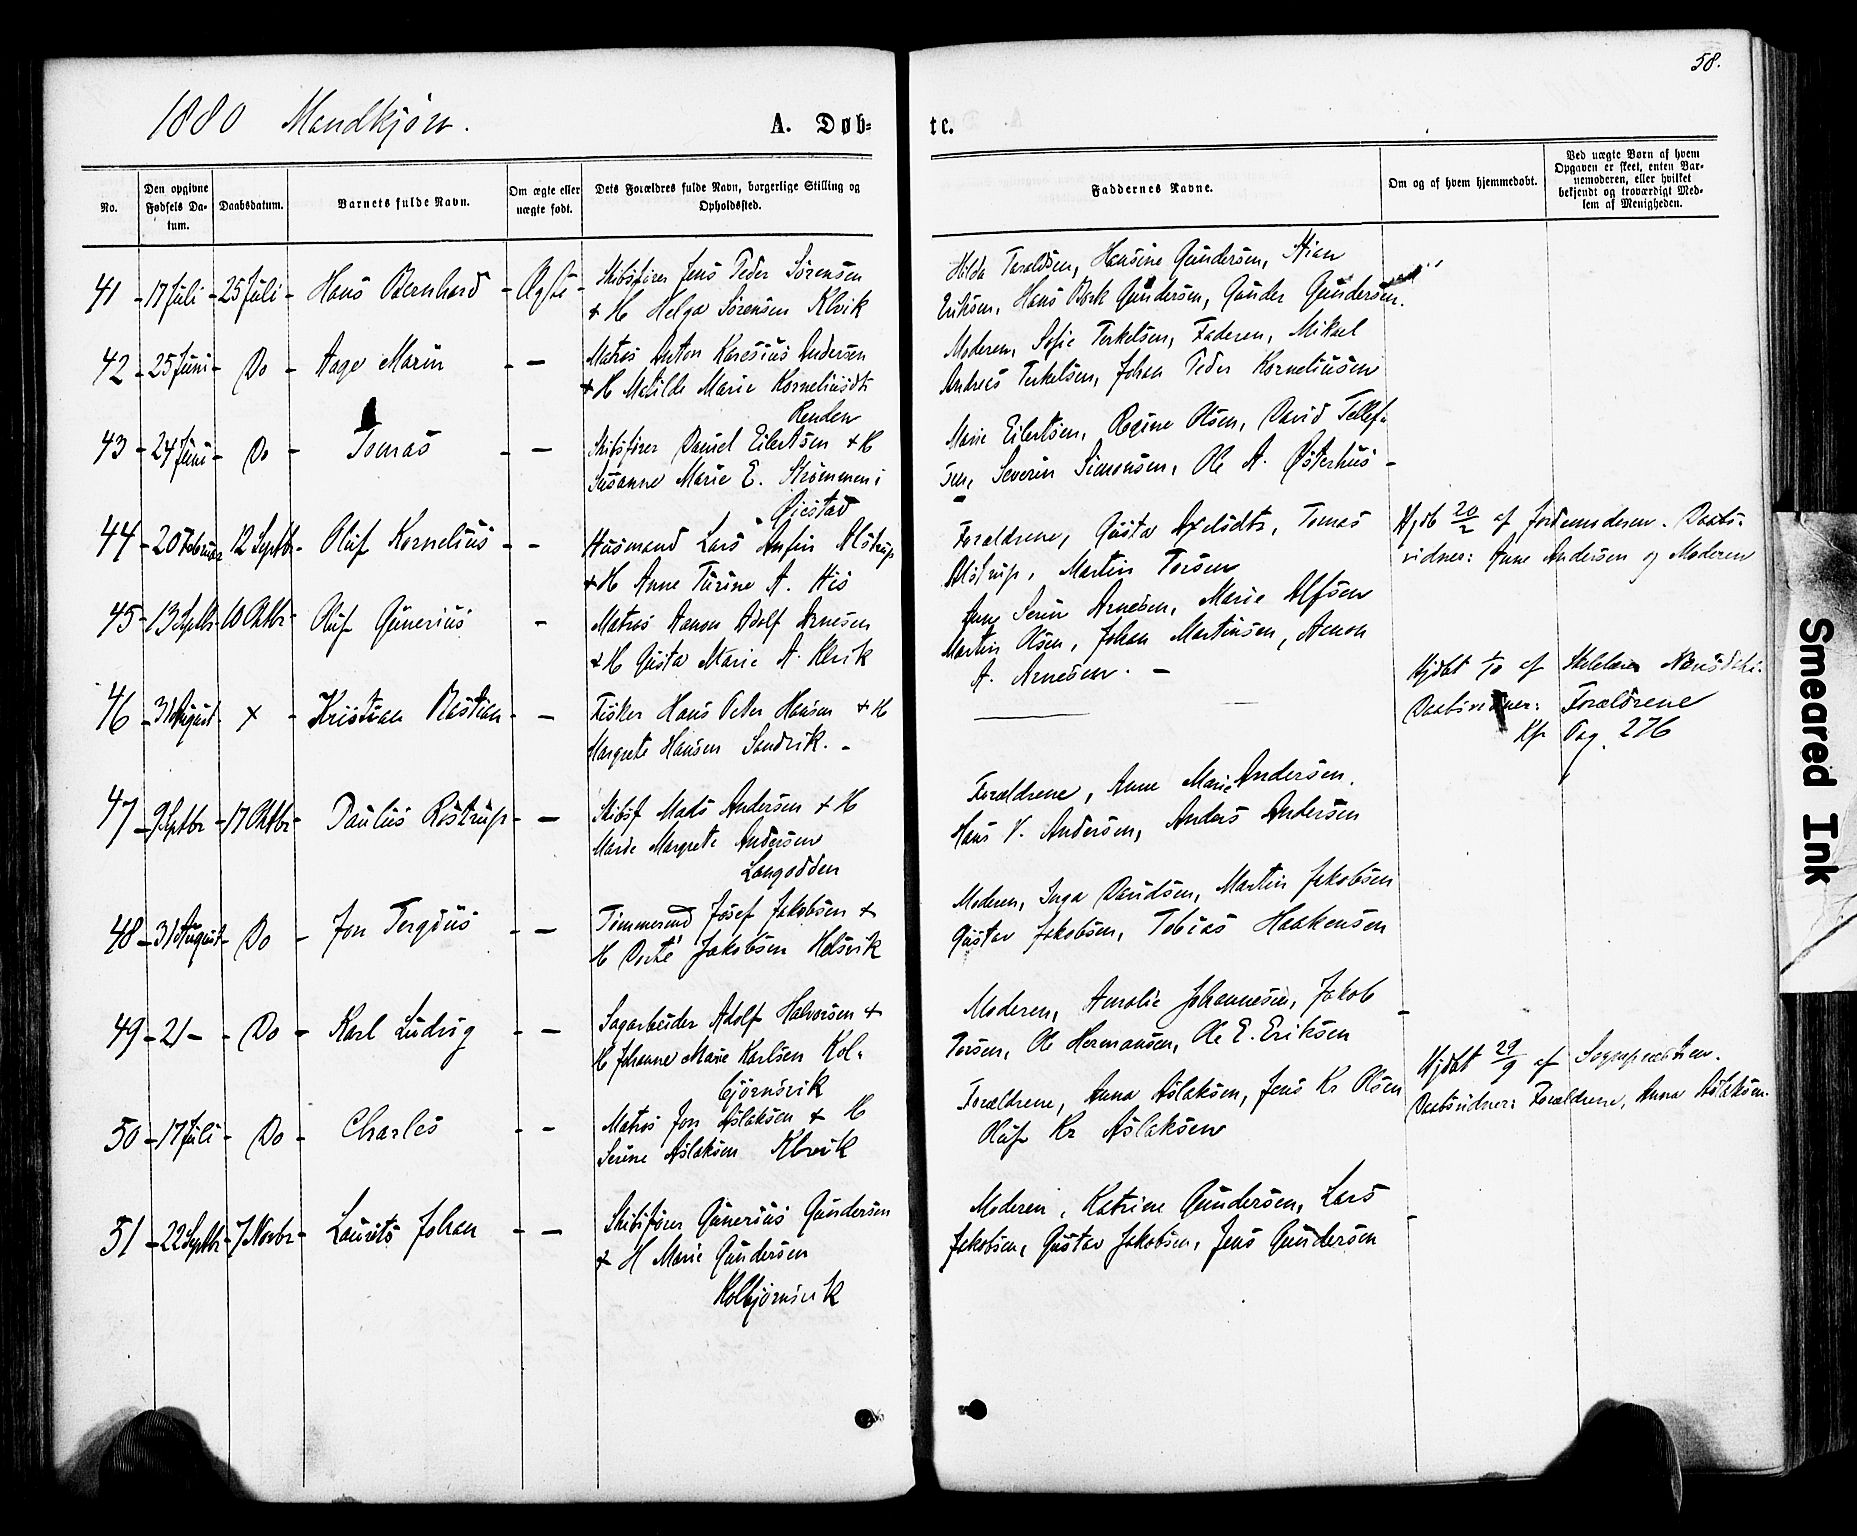 58.
1880 Mandkjøn.
A. Døb-
te.
No.
Den opgivne Fødsels Da-tum.
Daabsdatum.
Barnets fulde Navn.
Om ægte eller uægte født.
Dets Forældres fulde Navn, borgerlige Stilling og Opholdssted.
Faddernes Navne.
Om og af hvem hjemmedøbt.
Ved uægte Børn af hvem Opgaven er skeet, enten Bar-nemoderen, eller hvilket bekjendt og troværdigt Med-lem af Menigheden.
41 - 17 Juli - 25 Juli - Hans Bernhard - Ægte - Skibsfører Jens Peder Sörensen
+ H Helga Sörensen Klvik
Hilda Taraldsen, Hansine Gundersen, Stian
Eriksen, Hans Bork Gundersen, Gunder Gundersen.
42 - 25 Juni - Do - Aage Marin - - Matros Anton Karesius Andersen
+ H Matilde Marie Korneliusdtr
Renden
Moderen, Sofie Terkelsen, Faderen, Mikael
Andreas Terkelsen, Johan Peder Korneliusen
43 - 24 Juni - Do - Tomas - - Skibsfører Daniel Eilertsen + H
Susanne Marie E. Strömmen i
Øiestad
Marie Eilertsen, Regine Olsen, David Tellef-
sen, Severin Simonsen, Ole A. Østerhus -
44 - 20 Februar 12 Septbr - Oluf Kornelius - - Husmand Lars Anfin Alstrup
+ H Anne Turine A. His
Forældrene, Gusta Axelsdtr, Tomas
Alstrup, Martin Torsen
Hjdb 20/2 af Jordemoderen. Daabs-
vidner: Anne Andersen og Moderen
45 - 13 Septbr - 10 Oktbr - Oluf Gunerius - Matros Aanon Adolf Arnesen
+ H Gusta Marie A. Klvik
Anne Serine Arnesen, Marie Alfsen
Martin Olsen, Johan Martinsen, Aanon
A. Arnesen. -
46 - 31 August - x - Kristian Bastian - - Fisker Hans Peter Hansen + H
Margrete Hansen Sandvik. -
Hjdbt 1/10 af
Daabsvidner: Forældrene
Kp Pag. 276
47 - 9 Septbr - 17 Oktbr - Paulus Rostrup - - Skibsf Mads Andersen + H
Maren Margrete Andersen
Langodden
Forældrene, Anne Marie Andersen.
Hans V. Andersen, Anders Andersen
48 - 31 August - Do - Jon - - Tømmermd Josef Jakobsen +
H Dorte Jakobsen Helsvik
Moderen, Inga Davidsen, Martin Jakobsen
Gustav Jakobsen, Tobias Haakensen
49 - 21 - - Do - Karl Ludvig - - Sagarbeider Adolf Halvorsen +
H Johanne Marie Karlsen Kol-
björnsvik
Moderen, Amalie Johannesen, Jakob -
Torsen, Ole Hermansen, Ole E. Eriksen
50 - 17 Juli - Do - Charles - - Matros Jon Aslaksen + H
Serine Aslaksen Klvik
Forældrene, Anna Aslaksen, Jens Kr Olsen
Oluf Kr Aslaksen
Hjdbt 29/9 af Sognepræsten.
Daabsvidner: Forældrene, Anna Aslaksen.
51 - 22 Septbr - 7 Novbr - Laurits Johan - - Skibsfører Gunerius Gundersen
+ H Marie Gundersen
Kolbjörnsvik
Moderen, Katrine Gundersen, Lars
Jakobsen, Gustav Jakobsen, Jens Gundersen -
Smeared Ink